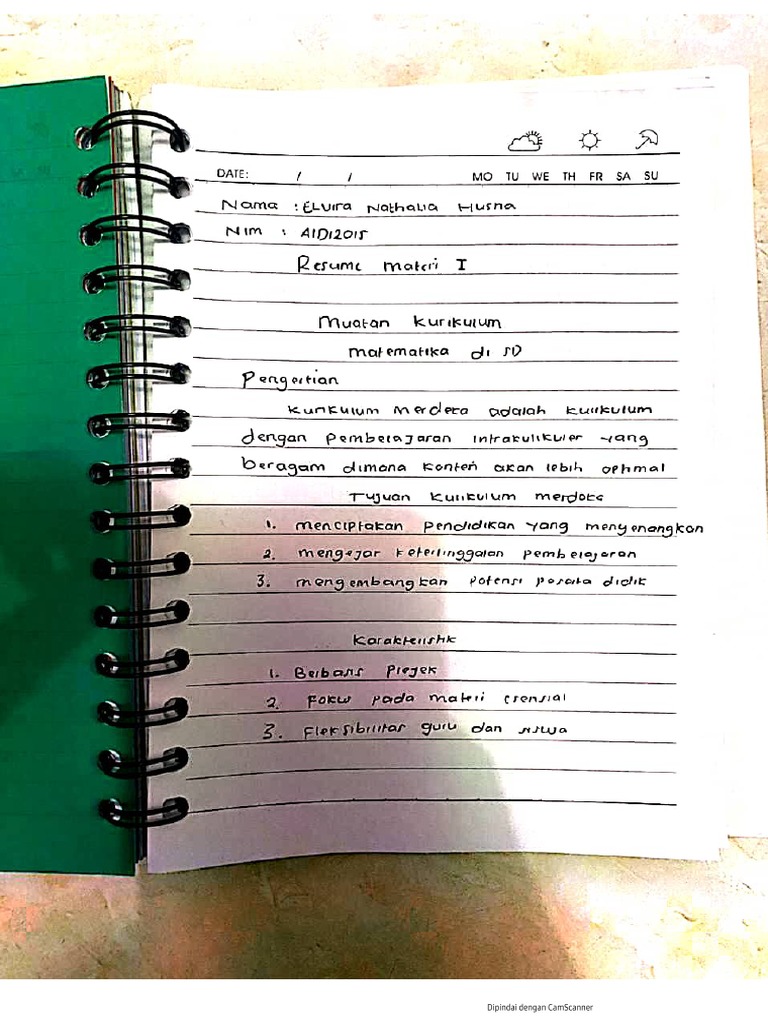 DATE: / / MO TU WE TH FR SA SU
Nama : Elvira Nathalia Husna
Nim : A1D12015
Resume materi I
Muatan Kurikulum
matematika di SD
Pengertian
Kurikulum merdeka adalah kurikulum
dengan pembelajaran intrakulikuler yang
beragam dimana konten akan lebih optimal
Tujuan Kurikulum merdeka
1. menciptakan pendidikan yang menyenangkan
2. mengejar ketertinggalan pembelajaran
3. mengembangkan potensi peserta didik
Karakteristik
1. Berbasis Projek
2. Fokus pada materi esensial
3. Fleksibilitas guru dan siswa
Dipindai dengan CamScanner